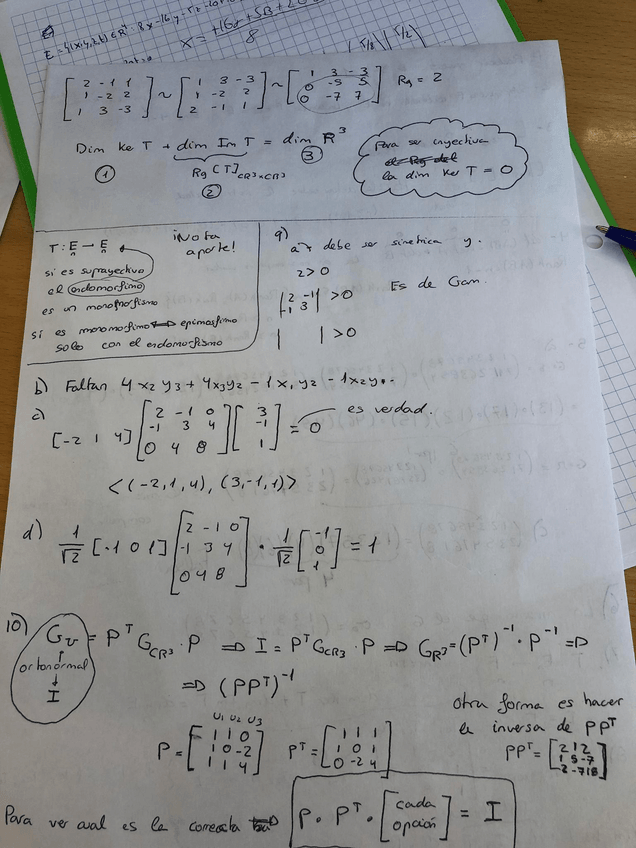 E = {(x,y,z,t) ∈ R⁴: 8x-16y-
x =
8
[2 -1 1; 1 -2 2; 1 3 -3] ~ [1 3 -3; 1 -2 2; 2 -1 1] ~ [1 3 -3; 0 -5 5; 0 -7 7] Rg = 2
Dim ke T + dim Im T = dim R³
① Rg [T]CR³×CR³ ③
②
Para ser inyectiva
la dim Ker T = 0
T: E → E
¡Nota aparte!
si es suprayectivo
el endomorfimo
es un monomorfismo
si es monomorfimo ⟺ epimorfismo
solo con el endomorfismo
9)
a) debe ser simetrica y.
2>0
|2 -1; -1 3| >0 Es de Gram.
| | >0
b) Faltan 4x₂y₃ + 4x₃y₂ - 1x₁y₂ - 1x₂y₁.
c) [-2 1 4] [2 -1 0; -1 3 4; 0 4 8] [3; -1; 1] = 0 es verdad.
<(-2,1,4), (3,-1,1)>
d) 1/√2 [-1 0 1] [2 -1 0; -1 3 4; 0 4 8] · 1/√2 [-1; 0; 1] = 1
10) Gᵥ = Pᵀ G_CR³ · P ⟹ I = Pᵀ G_CR³ · P ⟹ G_R³ = (Pᵀ)⁻¹ · P⁻¹ ⟹
ortonormal
↓
I
⟹ (PPᵀ)⁻¹
otra forma es hacer
la inversa de PPᵀ
U₁ U₂ U₃
P = [1 1 0; 1 0 -2; 1 1 4] Pᵀ = [1 1 1; 1 0 1; 0 -2 4] PPᵀ = [2 1 2; 1 5 -7; 2 -7 18]
Para ver cual es la correcta ⟹ P · Pᵀ · [cada opción] = I